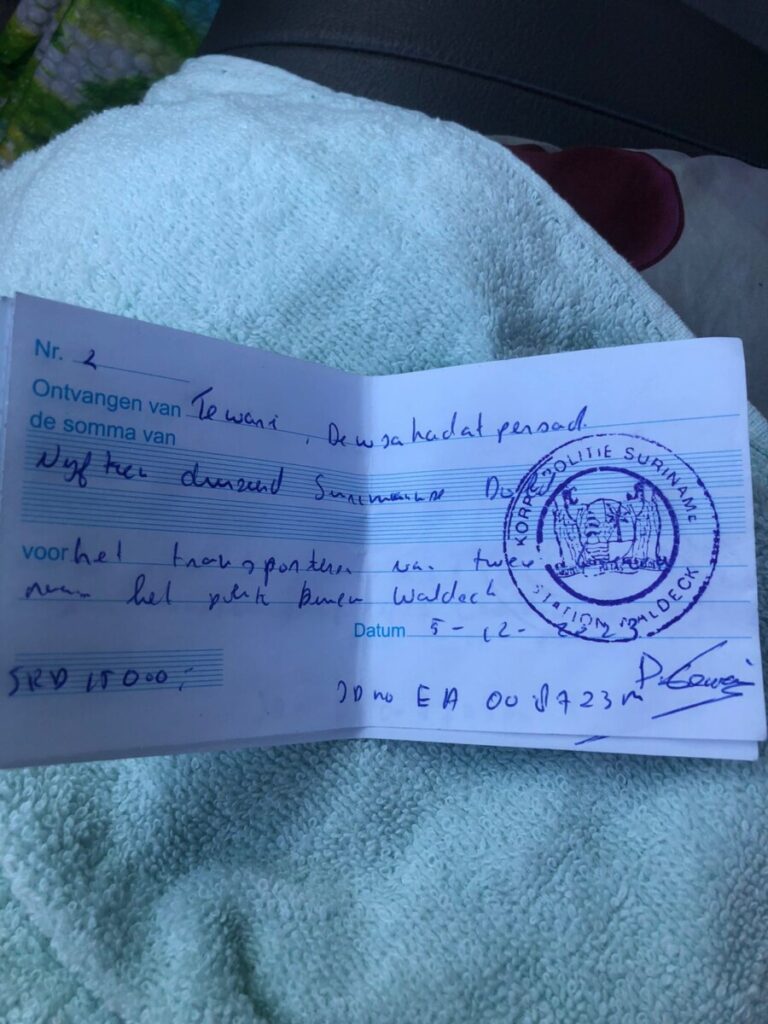 Nr. 2
Ontvangen van Tewari, Dewsahadatpersad.
de somma van
Vijftien duizend Surinaamse
voor het transporteren van twee
naar het Waldeck
Datum 5-12-2023
SRD 15000,-
ID no EA 008723m
KORPS POLITIE SURINAME
STATION WALDECK